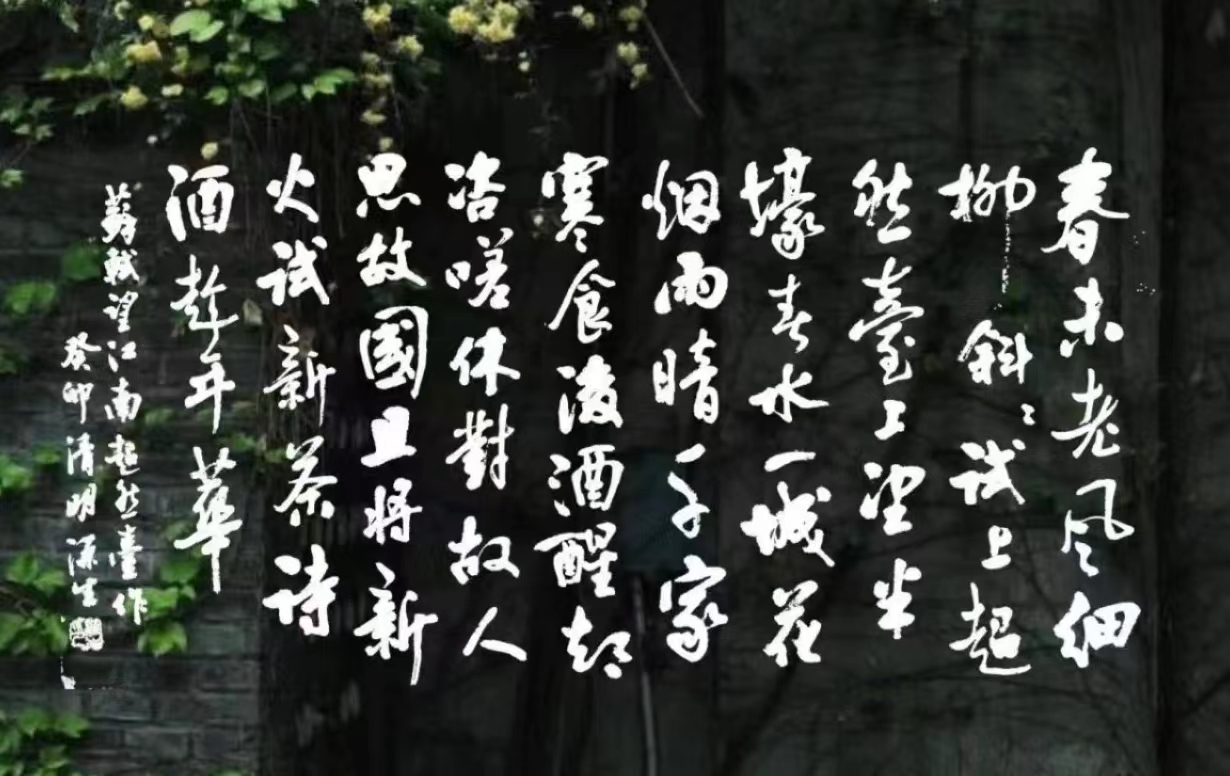 春未老风细
柳斜〻试上超
然臺上望半
壕春水一城花
烟雨暗千家
寒食後酒醒却
咨嗟休對故人
思故國且将新
火试新茶诗
酒趁年華
蘇軾望江南超然臺作
癸卯清明